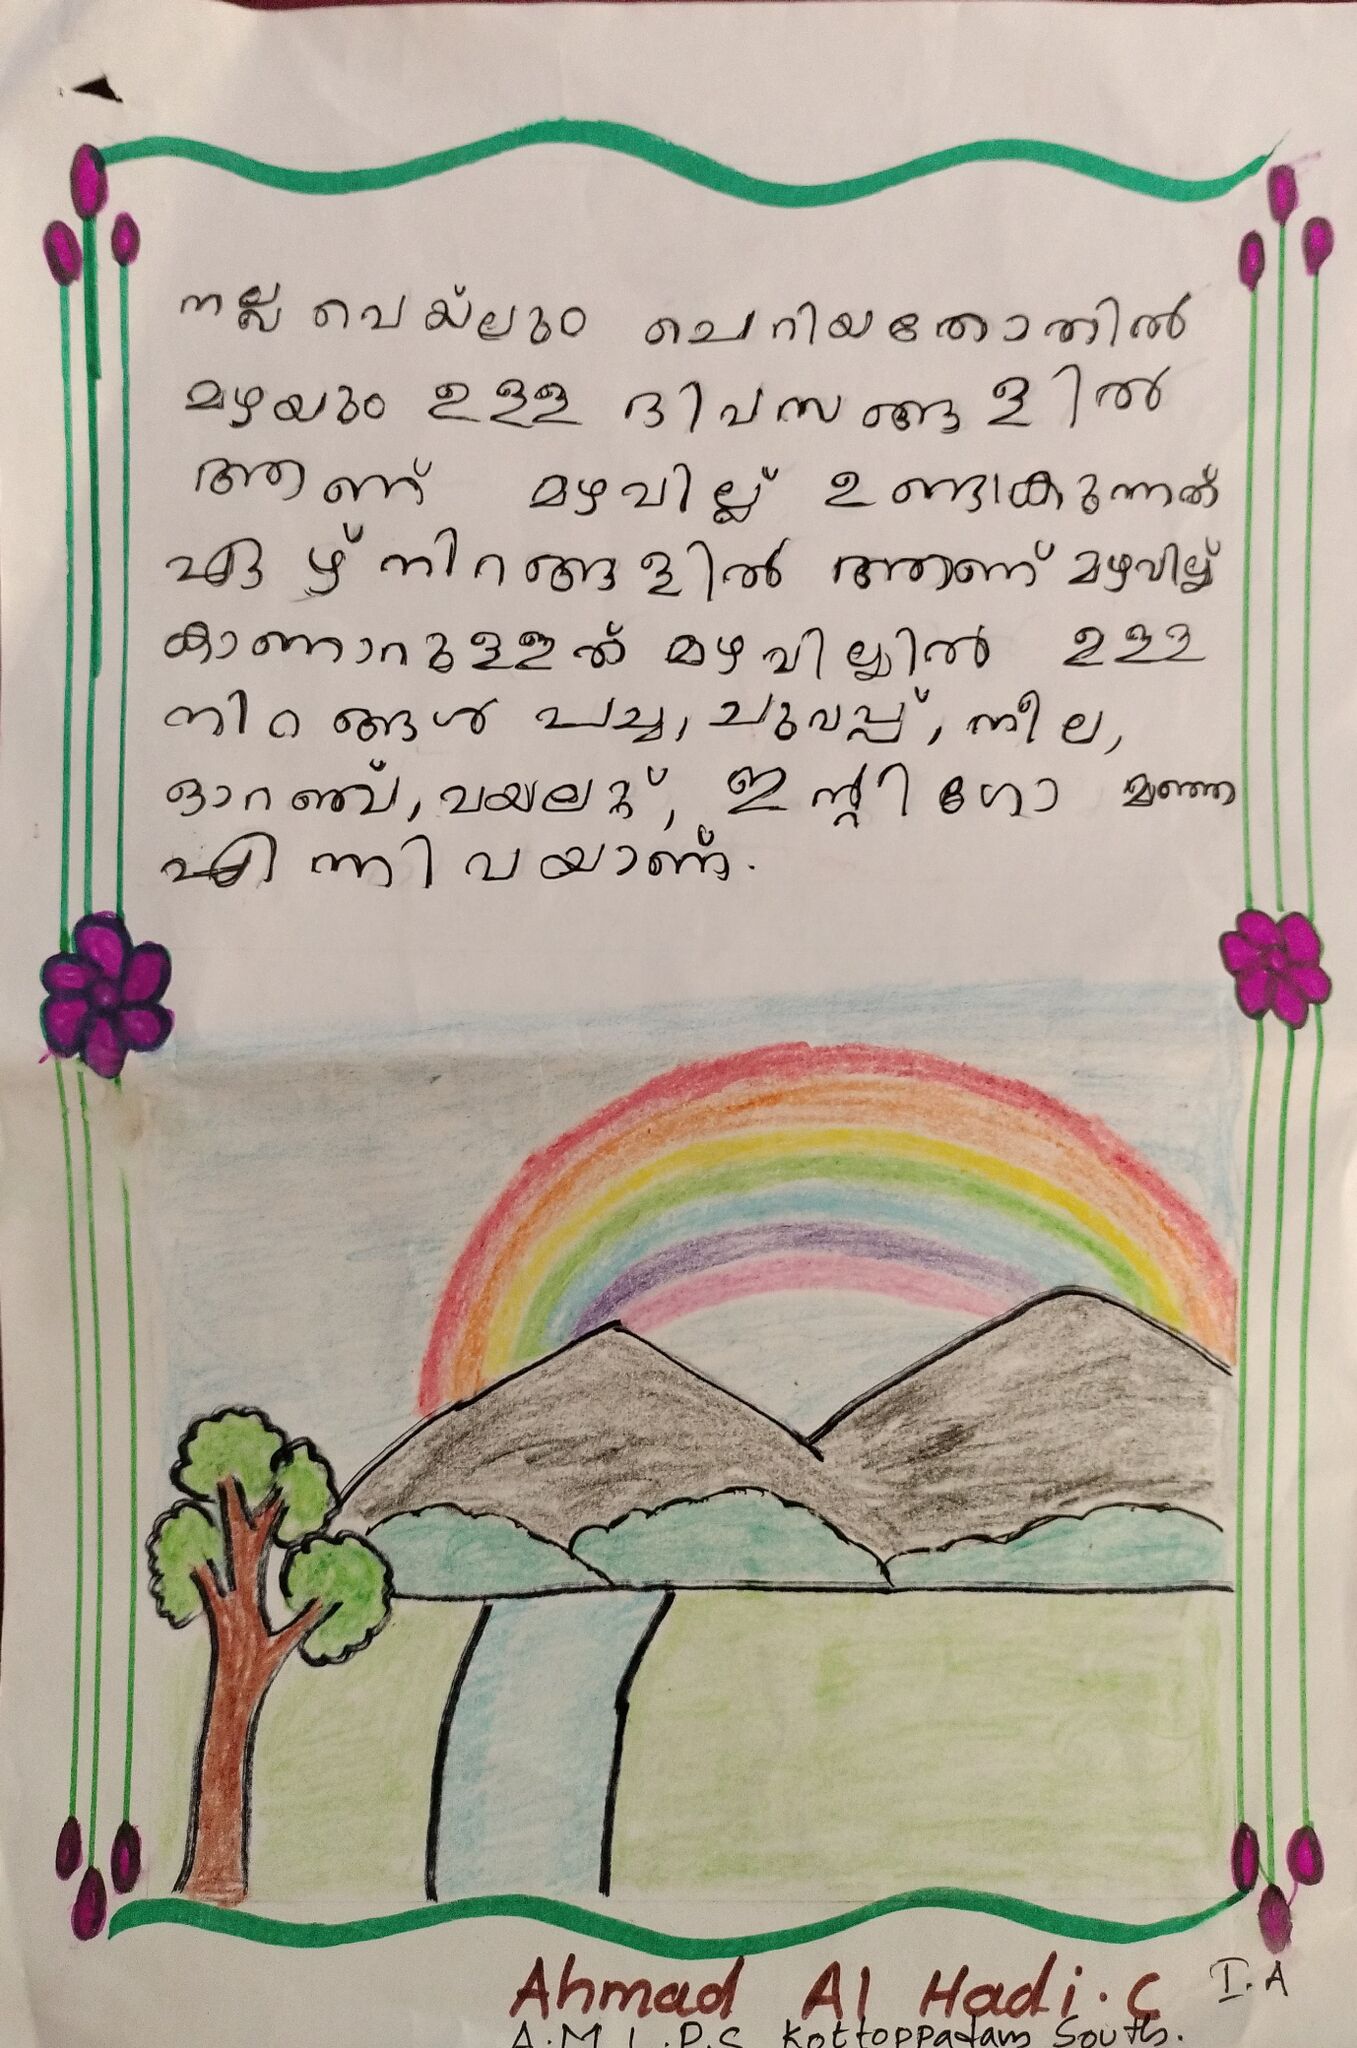 നല്ല വെയ്ലും ചെറിയതോതിൽ
മഴയും ഉള്ള ദിവസങ്ങളിൽ
ആണ് മഴവില്ല് ഉണ്ടാകുന്നത്
ഏഴ് നിറങ്ങളിൽ ആണ് മഴവില്ല്
കാണാറുള്ളത് മഴവില്ലിൽ ഉള്ള
നിറങ്ങൾ പച്ച, ചുവപ്പ്, നീല,
ഓറഞ്ച്, വയലറ്റ്, ഇന്റിഗോ മഞ്ഞ
എന്നിവയാണ്.
Ahmad Al Hadi.C I.A
A.M.L.P.S Kottoppadam South.